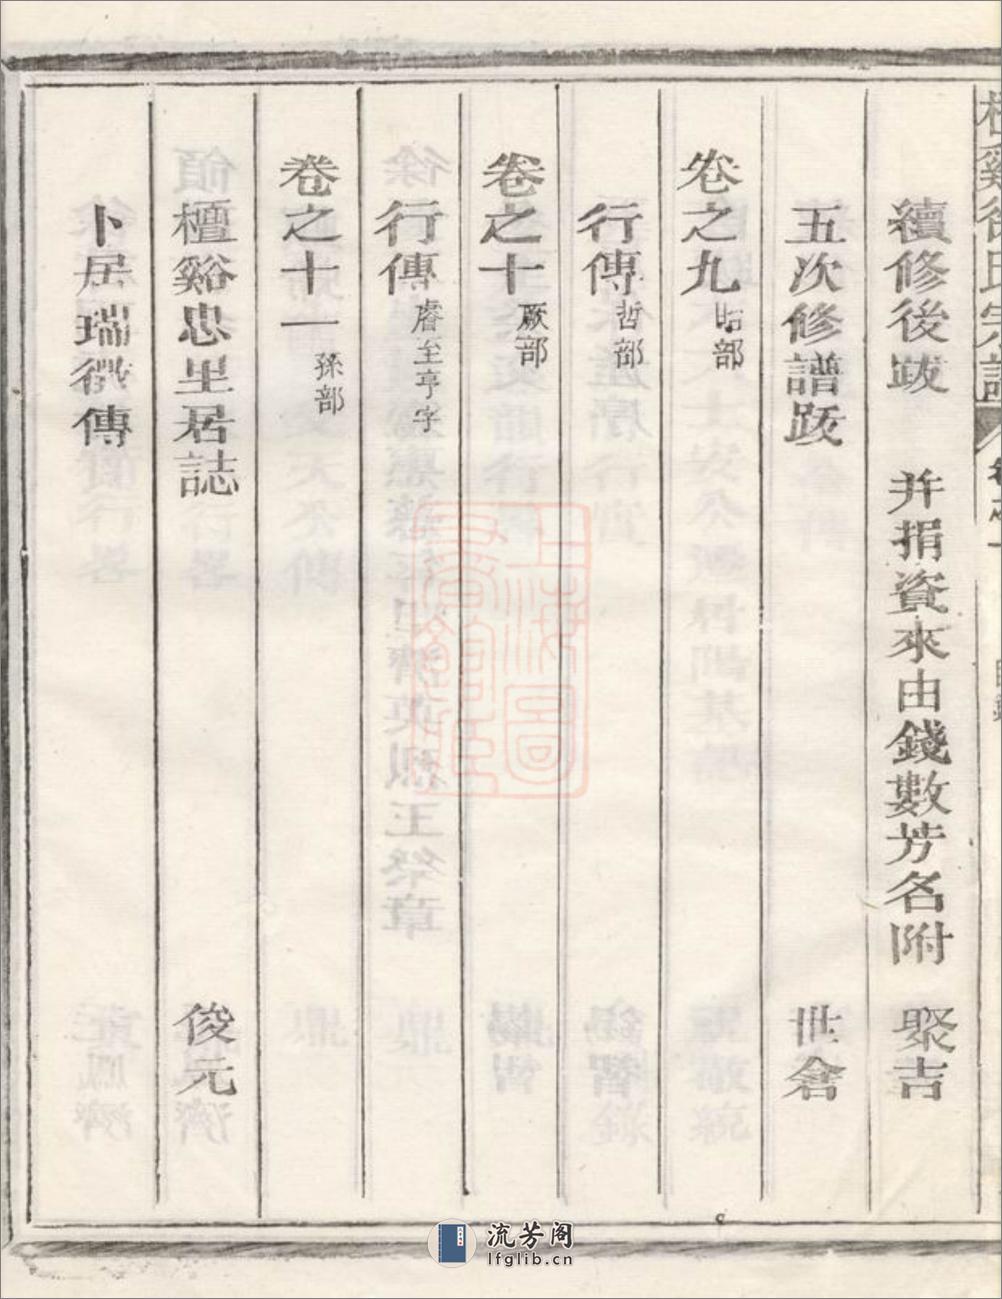 續修後跋 并捐資來由錢數芳名附 聚吉
五次修譜䟦 世倉
卷之九 昭部
行傳 哲部
卷之十 厥部
行傳 睿至亨字
卷之十一 孫部
檀谿忠里居誌 俊元
卜居瑞徵傳
流芳阁
lfglib.cn